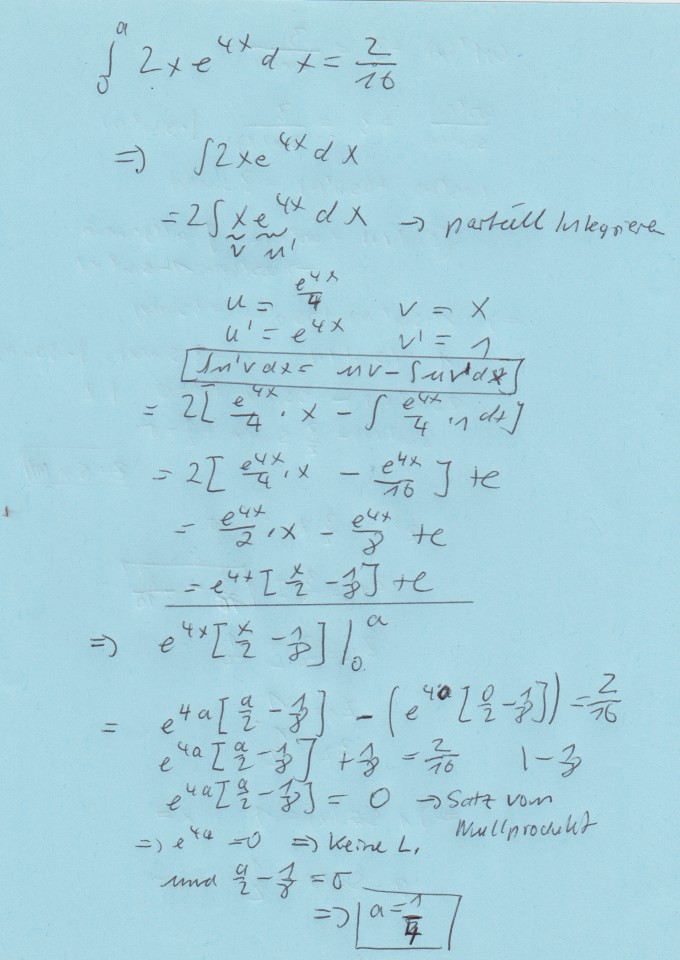 ∫₀ᵃ 2x e^{4x} dx = 2/16
=> ∫2xe^{4x} dx
= 2∫ x e^{4x} dx → partiell Integrieren
v u'
u = e^{4x}/4 v = x
u' = e^{4x} v' = 1
∫u'v dx = uv - ∫uv'dx
= 2[ e^{4x}/4 · x - ∫ e^{4x}/4 · 1 dx]
= 2[ e^{4x}/4 · x - e^{4x}/16 ] + c
= e^{4x}/2 · x - e^{4x}/8 + c
= e^{4x} [x/2 - 1/8] + c
=> e^{4x} [x/2 - 1/8] |₀ᵃ
= e^{4a} [a/2 - 1/8] - (e^{4·0} [0/2 - 1/8]) = 2/16
e^{4a} [a/2 - 1/8] + 1/8 = 2/16 | - 1/8
e^{4a} [a/2 - 1/8] = 0 → Satz vom
Nullprodukt
=> e^{4a} = 0 => Keine L.
und a/2 - 1/8 = 0
=> a = 1/4